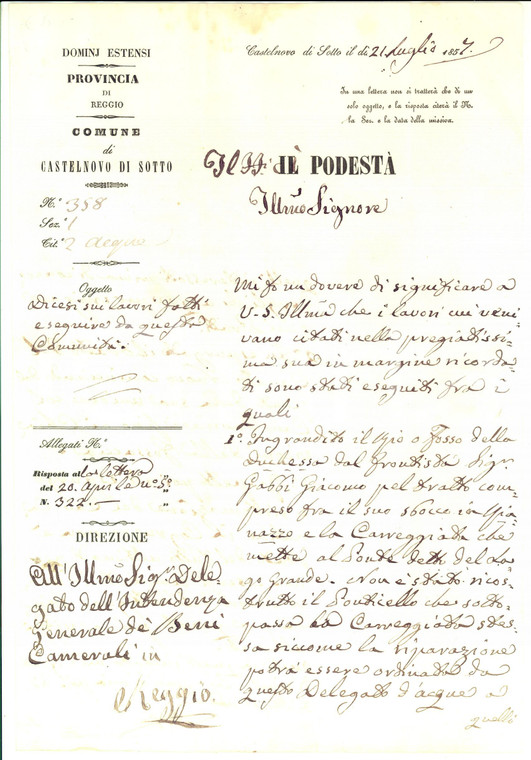 DOMINJ ESTENSI
PROVINCIA
DI
REGGIO
COMUNE
di
CASTELNOVO DI SOTTO
N.° 358
Sez. 1
Tit. 2 acque
Oggetto
Dicesi sui lavori fatti
eseguire da questa
Comunità.
Allegati N.°
Risposta alla lettera
del 20. Aprile n.° 5.°
N. 322.
DIREZIONE
All'Illmo Sigr. Dele-
gato dell'Intendenza
Generale de' Beni
Camerali in
Reggio.
Castelnovo di Sotto il dì 21 Luglio 1857.
In una lettera non si tratterà che di un
solo oggetto, e la risposta citerà il N.
la Sez. e la data della missiva.
Il PODESTÀ
Illmo Signore
Mi fo un dovere di significare a
V. S. Illma che i lavori cui veni-
vano citati nella pregiatissi-
ma sua in margine ricorda-
ta sono stati eseguiti fra i
quali
1.° Ingrandito il Rio o Fosso della
Duchessa dal frontista Sigr.
Gabbi Giacomo pel tratto com-
preso fra il suo sbocco in
e la Carreggiata che
mette al Ponte detto del La-
go Grande. Non è stato ricos-
trutto il Ponticello che sotto-
passa la Carreggiata stes-
sa siccome la riparazione
potrà essere ordinata da
questo Delegato d'acque a
quelli